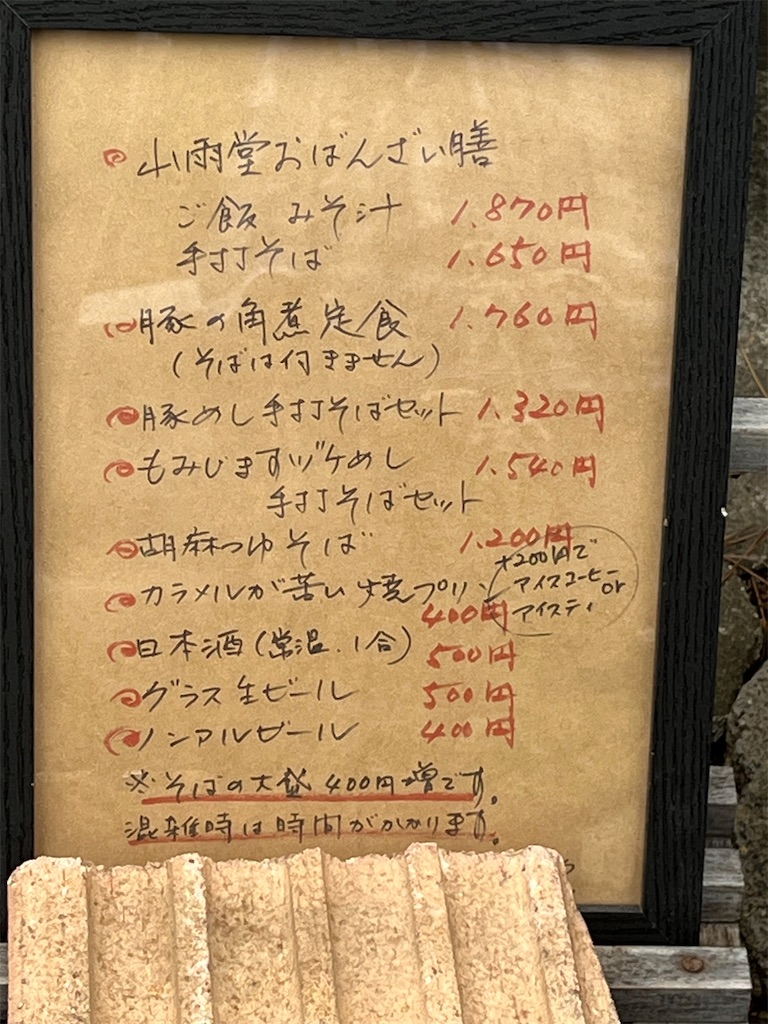 小雨堂おばんざい膳
ご飯 みそ汁 1.870円
手打そば 1.650円
豚の角煮定食 1.760円
(そばは付きません)
豚めし手打そばセット 1.320円
もみじますヅケめし 1.540円
手打そばセット
胡麻つゆそば 1.200円
カラメルが苦い焼プリン
400円
+200円で
アイスコーヒー
or
アイスティ
日本酒(常温.1合) 500円
グラス生ビール 500円
ノンアルビール 400円
※そばの大盛400円増です。
混雑時は時間がかかります。